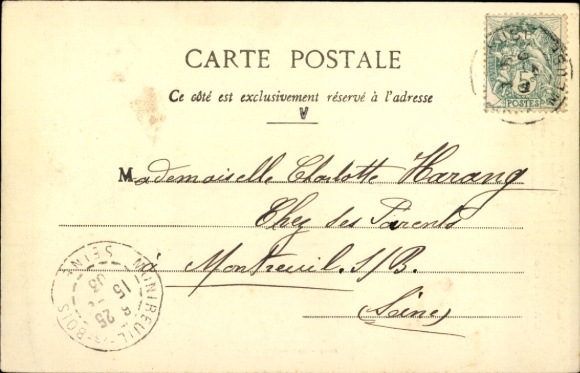 CARTE POSTALE
Ce côté est exclusivement réservé à l'adresse
V
Mademoiselle Charlotte Harang
Chez ses Parents
à Montreuil. S/B.
(Seine)
5
POSTES
MONTREUIL-S-BOIS
SEINE
15
8
25
03